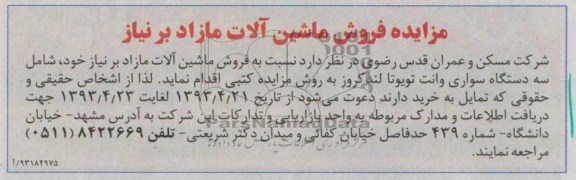 مزایده فروش ماشین آلات مازاد بر نیاز
شرکت مسکن و عمران قدس رضوی در نظر دارد نسبت به فروش ماشین آلات مازاد بر نیاز خود، شامل
سه دستگاه سواری وانت تویوتا لندکروز به روش مزایده کتبی اقدام نماید. لذا از اشخاص حقیقی و
حقوقی که تمایل به خرید دارند دعوت می‌شود از تاریخ ۱۳۹۳/۴/۲۱ لغایت ۱۳۹۳/۴/۲۳ جهت
دریافت اطلاعات و مدارک مربوطه به واحد بازاریابی و تدارکات این شرکت به آدرس مشهد- خیابان
دانشگاه- شماره ۴۳۹ حدفاصل خیابان کفائی و میدان دکتر شریعتی- تلفن ۸۴۲۲۶۶۹ (۰۵۱۱)
مراجعه نمایند.
۹۳۱۸۴۹۷۵/آ
ParsNamadData